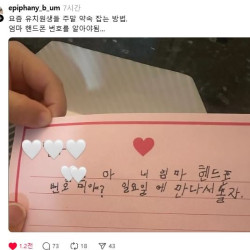 epiphany_b_um 7시간
요즘 유치원생들 주말 약속 잡는 방법.
엄마 핸드폰 번호를 알아야됨...
마 니 엄마 핸드폰
번호 머야? 일요일에 만나서놀자.
1.2천 73 18 140